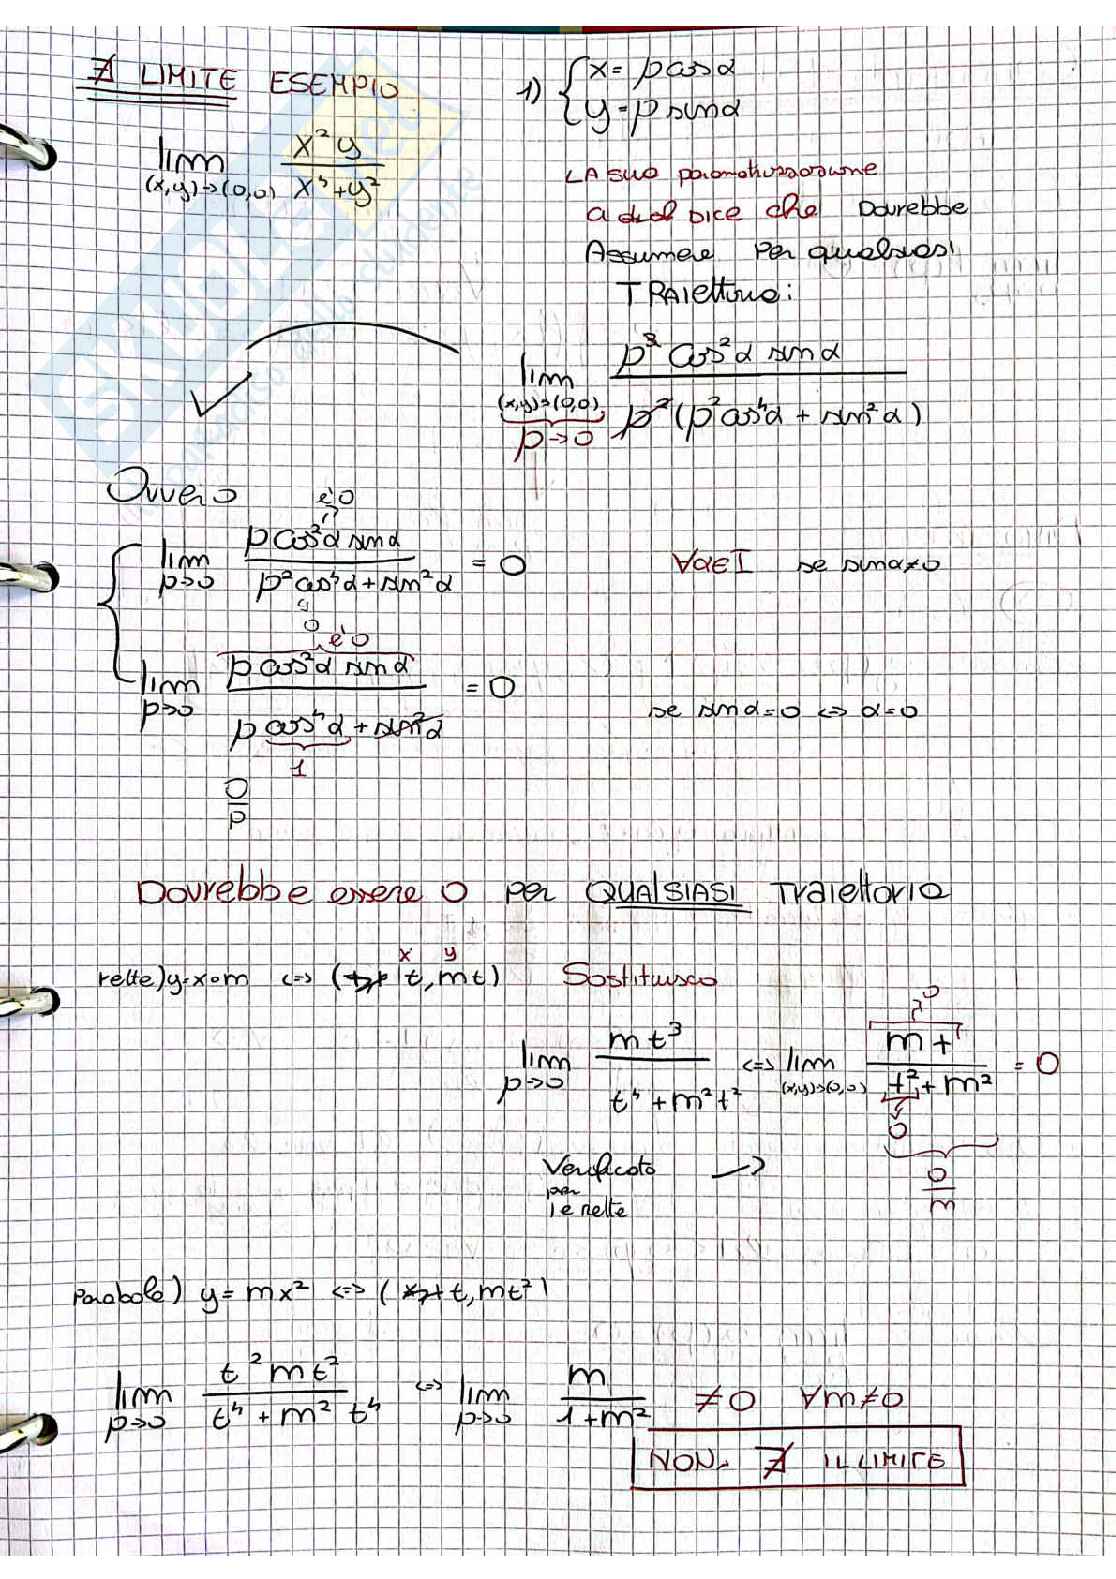 ∄ LIMITE ESEMPIO
lim (x,y)→(0,0) x²y / x⁴+y²
1) { x = ρ cos α
y = ρ sin α
LA sua parametrizzazione
DICE che Dovrebbe
Assumere Per qualsiasi
TRAIettoria:
lim (x,y)→(0,0) ρ→0 ρ³ cos²α sin α / ρ²(ρ²cos⁴α + sin²α)
Ovvero
è 0
lim ρ→0 ρ cos²α sin α / ρ²cos⁴α + sin²α = 0 ∀α∈I se sinα≠0
0
è 0
lim ρ→0 ρ cos²α sin α / ρ cos⁴α + sin²α = 0 se sin α=0 ⇔ α=0
1
0/ρ
Dovrebbe essere 0 per QUALSIASI Traiettoria
x y
rette) y=x·m ⇔ (t, mt) Sostituisco
lim ρ→0 mt³ / t⁴+m²t² ⇔ lim (x,y)→(0,0) mt / t²+m² = 0
0
0
0/m
Verificato →
per
le rette
Parabole) y = mx² ⇔ (t, mt²)
lim ρ→0 t²mt² / t⁴+m²t⁴ ⇔ lim ρ→0 m / 1+m² ≠0 ∀m≠0
NON ∄ IL LIMITE